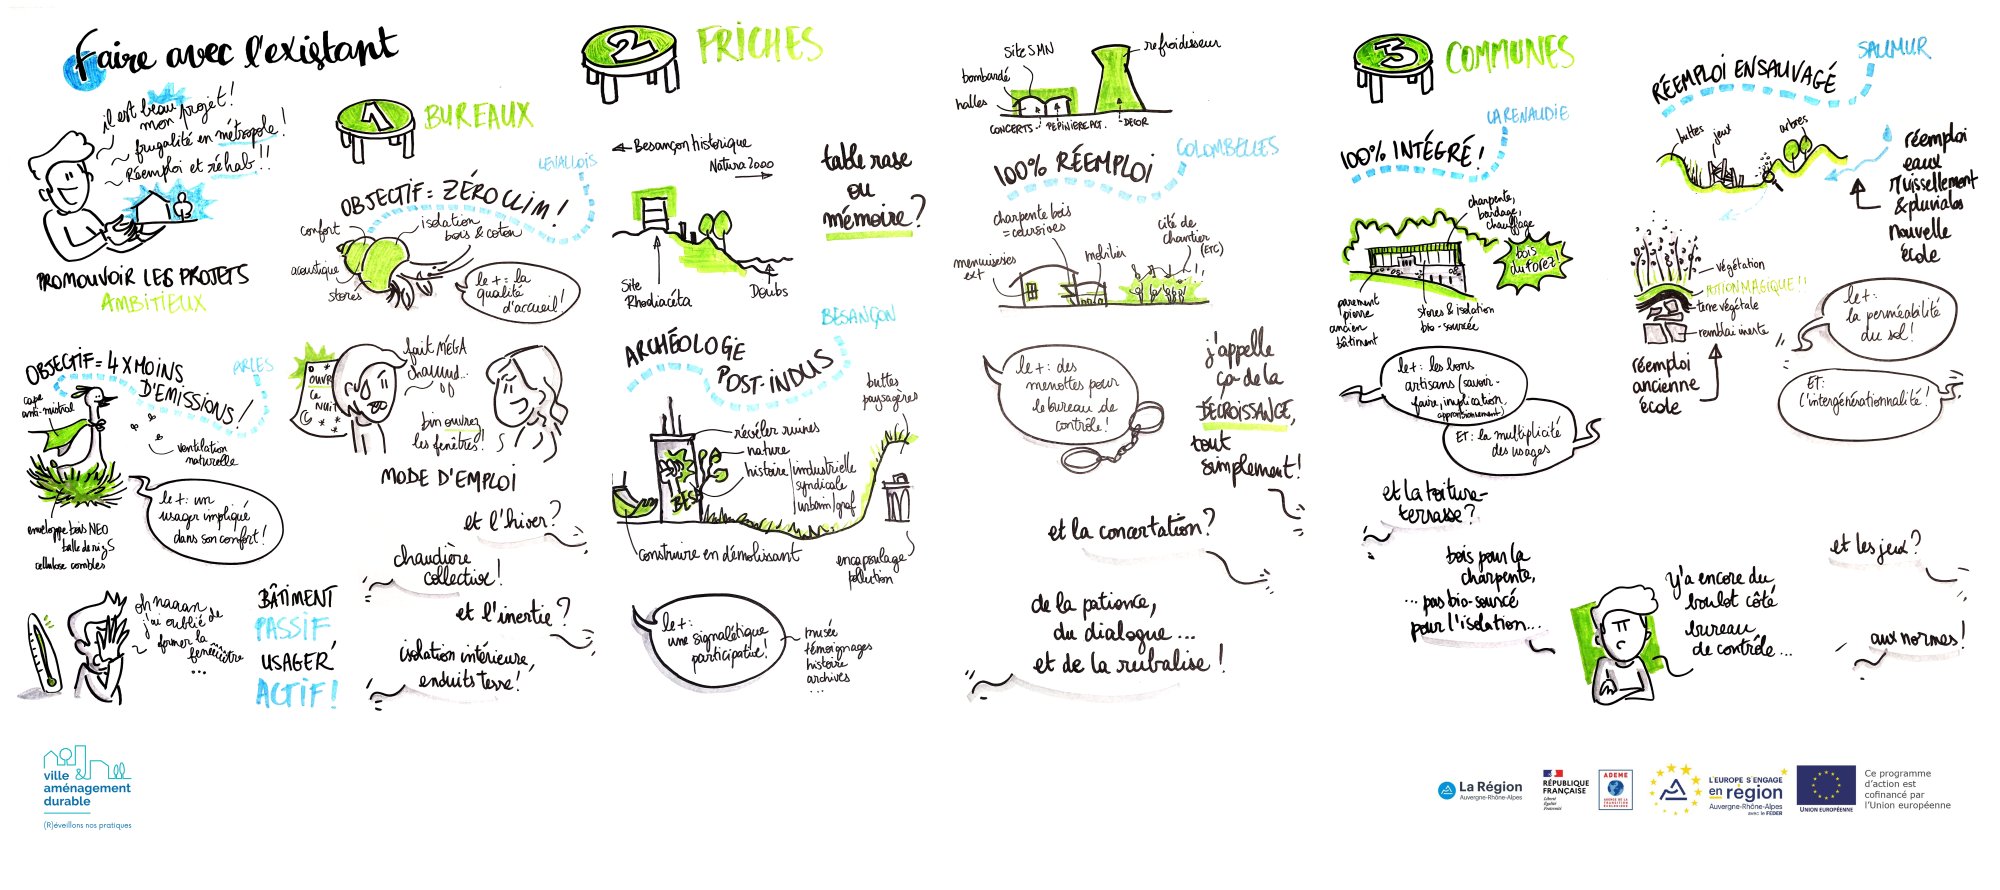 Faire avec l'existant
il est beau
mon projet!
frugalité en métropole!
Réemploi et réhab!!
PROMOUVOIR LES PROJETS
AMBITIEUX
1 BUREAUX
LEVALLOIS
OBJECTIF = ZÉRO CLIM!
confort
isolation
bois & coton
acoustique
stores
le +: la
qualité
d'accueil!
ARLES
OBJECTIF = 4 X MOINS
D'ÉMISSIONS!
cape
anti-mistral
ventilation
naturelle
le +: un
usager impliqué
dans son confort!
enveloppe bois NEO
balle de riz
cellulose combles
oh naaan
j'ai oublié de
fermer la
fenêêêtre
...
BÂTIMENT
PASSIF
USAGER
ACTIF!
OUVR
CE
NUIT
fait MÉGA
chauuud...
bin ouvrez
les fenêtres!
MODE D'EMPLOI
et l'hiver?
chaudière
collective!
et l'inertie?
isolation intérieure,
enduits terre!
2 FRICHES
Besançon historique
Natura 2000
table rase
ou
mémoire?
Site
Rhodiacéta
Doubs
BESANÇON
ARCHÉOLOGIE
POST-INDUS
buttes
paysagères
révéler ruines
nature
histoire
industrielle
syndicale
urbain/graf
BES
construire en démolissant
encapsulage
pollution
le +:
une signalétique
participative!
musée
témoignages
histoire
archives
...
Site SMN
refroidisseur
bombardé
halles
CONCERTS
PÉPINIÈRE ACT.
DÉCOR
COLOMBELLES
100% RÉEMPLOI
charpente bois
= coursives
cité de
chantier
(ETC)
menuiseries
ext
mobilier
le +: des
menottes pour
le bureau de
contrôle!
j'appelle
ça de la
DÉCROISSANCE,
tout
simplement!
et la concertation?
de la patience,
du dialogue...
et de la rubalise!
3 COMMUNES
LA RENAUDIE
100% INTÉGRÉ!
charpente,
bardage,
chauffage
bois
du Forez!
parement
pierre
ancien
bâtiment
stores & isolation
bio-sourcée
le +: les bons
artisans (savoir-
faire, implication,
approvisionnement)
ET: la multiplicité
des usages
et la toiture-
terrasse?
bois pour la
charpente,
... pas bio-sourcé
pour l'isolation...
y'a encore du
boulot côté
bureau
de contrôle...
SAUMUR
RÉEMPLOI ENSAUVAGÉ
buttes
jeux
arbres
réemploi
eaux
ruissellement
& pluviales
nouvelle
école
végétation
POTION MAGIQUE!!
terre végétale
remblai inerte
réemploi
ancienne
école
le +:
la perméabilité
du sol!
ET:
l'intergénérationnalité!
et les jeux?
aux normes!
ville
&
aménagement
durable
(R)éveillons nos pratiques
La Région
Auvergne-Rhône-Alpes
RÉPUBLIQUE
FRANÇAISE
Liberté
Égalité
Fraternité
ADEME
AGENCE DE LA
TRANSITION
ÉCOLOGIQUE
L'EUROPE S'ENGAGE
en région
Auvergne-Rhône-Alpes
avec le FEDER
UNION EUROPÉENNE
Ce programme
d'action est
cofinancé par
l'Union européenne